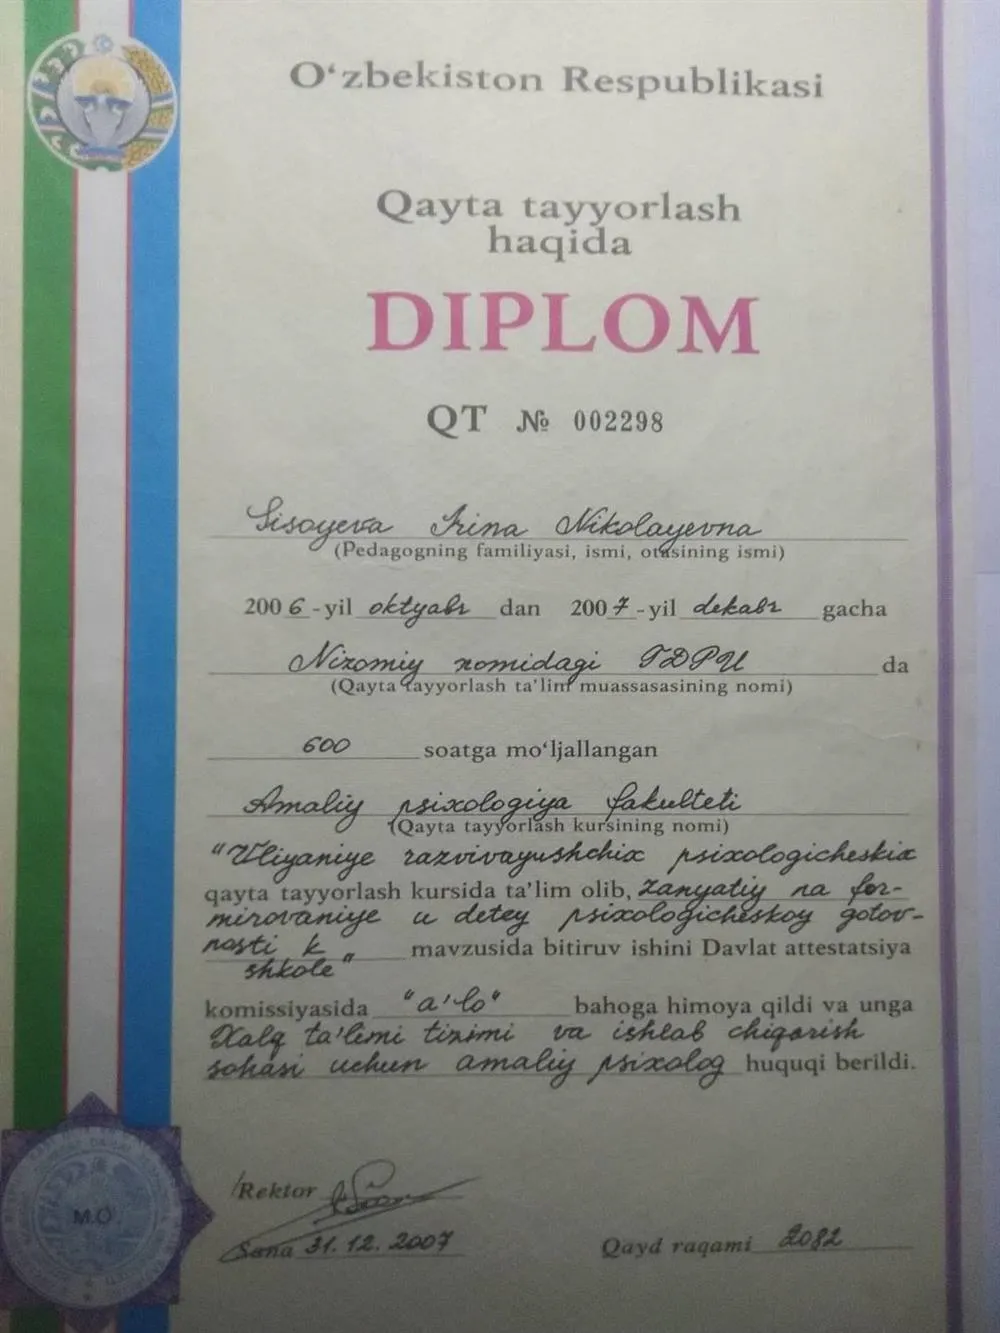 O‘zbekiston Respublikasi
Qayta tayyorlash
haqida
DIPLOM
QT № 002298
Sisoyeva Irina Nikolayevna
(Pedagogning familiyasi, ismi, otasining ismi)
2006-yil oktyabr dan 2007-yil dekabr gacha
Nizomiy nomidagi TDPU da
(Qayta tayyorlash ta'lim muassasasining nomi)
600 soatga mo‘ljallangan
Amaliy psixologiya fakulteti
(Qayta tayyorlash kursining nomi)
"Vliyaniye razvivayushchix psixologicheskix
qayta tayyorlash kursida ta'lim olib, zanyatiy na for-
mirovaniye u detey psixologicheskoy gotov-
nosti k mavzusida bitiruv ishini Davlat attestatsiya
shkole"
komissiyasida "a'lo" bahoga himoya qildi va unga
Xalq ta'limi tizimi va ishlab chiqarish
sohasi uchun amaliy psixolog huquqi berildi.
Rektor
Sana 31.12.2007 Qayd raqami 2082
M.O.